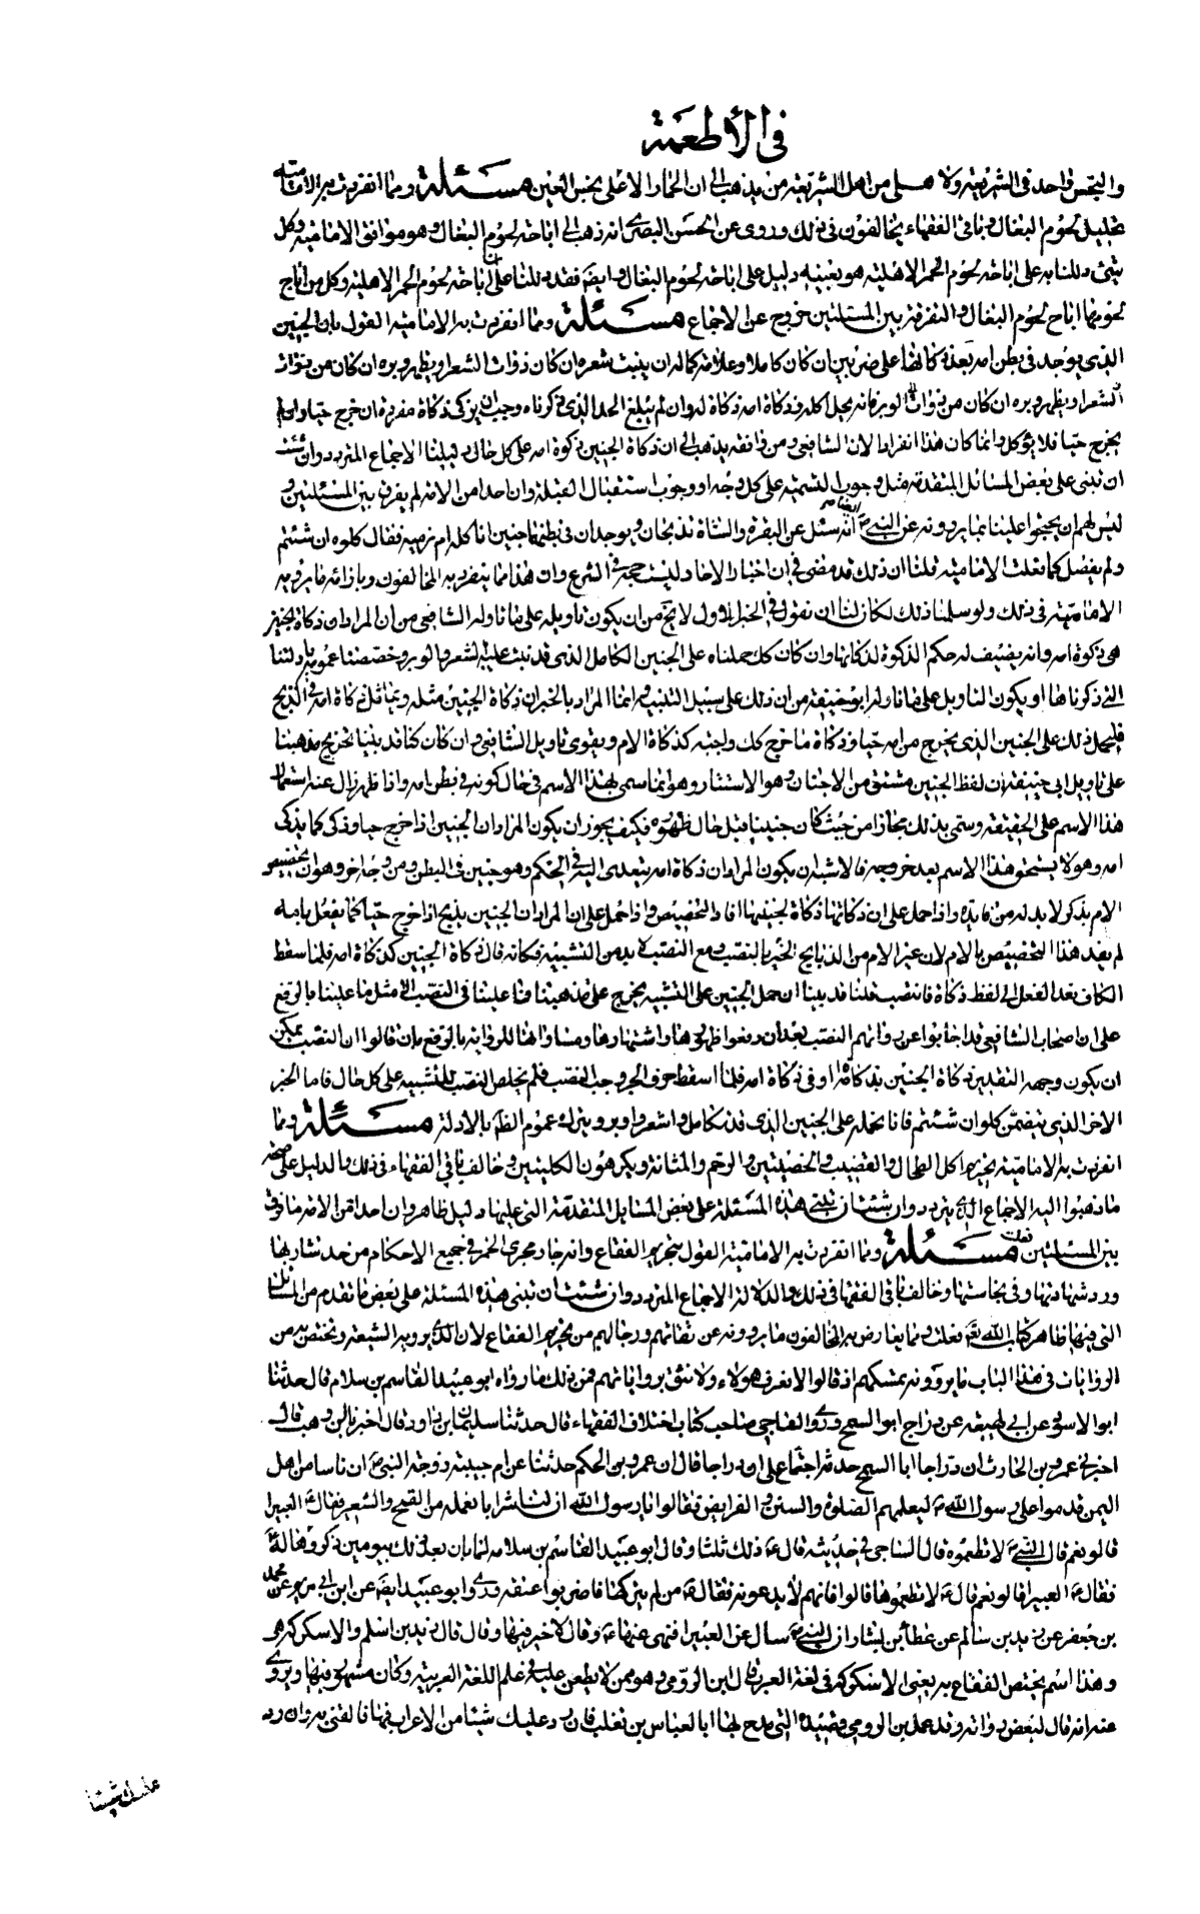 في الأطعمة
والنجس واحد في الشريعة ولا من اهل الشريعة من يذهب الى ان الحمار الاهلى نجس العين مسئلة ومما انفردت به الامامية
تحليل لحوم البغال وباقى الفقهاء يخالفون فى ذلك وروى عن الحسن البصرى انه ذهب الى اباحة لحوم البغال وهو موافق الامامية وكل
شئ دللنا به على اباحة لحوم الحمر الاهلية هو بعينه دليل على اباحة لحوم البغال وايضا فقد دللنا على اباحة لحوم الحمر الاهلية وكل من اباح
لحومها اباح لحوم البغال والتفرقة بين المسئلتين خروج عن الاجماع مسئلة ومما انفردت به الامامية القول بان الجنين
الذى يوجد فى بطن امه بعد ذكاتها على ضربين ان كان كاملا وعلامة كماله ان ينبت شعره ان كان ذوات الشعر او يظهر وبره ان كان من ذوات
الشعر او يظهر وبره ان كان من ذوات الوبر فانه يحل اكله وذكاة امه ذكاة له وان لم يبلغ الحد الذى ذكرناه وجب ان يزكى ذكاة مفردة ان خرج حيا وان لم
يخرج حيا فلا يؤكل وانما كان هذا انفرادا لان الشافعى ومن وافقه يذهب الى ان ذكاة الجنين ذكوة امه على كل حال دليلنا الاجماع المتردد وان شئت
ان تبنى على بعض المسائل المتقدمة مثل وجوب التسمية على كل وجه او وجوب استقبال القبلة وان احدا من الامة لم يفرق بين المسئلتين و
ليس لهم ان يحتجوا علينا بما يروونه عن النبى ص انه سئل عن البقرة والشاة تذبحان ويوجد ان فى بطنهما جنين اناكله ام نرميه فقال كلوه ان شئتم
ولم يفصل كما فعلت الامامية قلنا ان ذلك قد مضى فى ان اخبار الاحاد ليست حجة فى الشرع وان هذا مما يتفرد به المخالفون وبازائه ما يرويه
الامامية فى ذلك ولو سلمنا ذلك لكان لنا ان نقول فى الخبر الاول لا يخ من ان يكون تاويله على ما تاوله الشافعى من ان المراد ان ذكاة الجنين
هى ذكوة امه وانه يضيف له حكم الذكوة لذكاتها وان كان كك حملناه على الجنين الكامل الذى قد نبت عليه الشعر والوبر وخصصنا عمومه بادلتنا
التى ذكرناها او يكون التاويل على ما تاوله ابو حنيفة من ان ذلك على سبيل التشبيه وانما المراد بالخبر ان ذكاة الجنين مثله ويماثل ذكاة امه فى الذبح
فليحمل ذلك على الجنين الذى يخرج من امه حيا وذكاة ما خرج كك واجبة كذكاة الام ويقوى تاويل الشافعى وان كان كنا قد بينا تخريج مذهبنا
على تاويل ابى حنيفة ان لفظ الجنين مشتق من الاجتنان وهو الاستتار وهو انما سمى بهذا الاسم فى حال كونه فى بطن امه واذا ظهر زال عنه استعمال
هذا الاسم على الحقيقة وسمى بذلك مجازا من حيث كان جنينا قبل حال ظهوره فكيف يجوز ان يكون المراد ان الجنين اذا خرج حيا وذكى كما يذكى
امه وهو لا يستحق هذا الاسم بعد خروجه فالاشبه ان يكون المراد ان ذكاة امه يتعدى اليه فى الحكم وهو جنين فى البطن ومن وجه اخر وهو ان تخصيص
الام بذكر لا بد له من فايدة واذا حمل على ان ذكاتها ذكاة لجنينها افاد التخصيص واذا حمل على ان المراد ان الجنين يذبح اذا خرج حيا كما يفعل بامه
لم يفد هذا التخصيص بالام لان غير الام من الذبايح الخبر بالنصب ومع النصب لا بد من التشبيه فكانه قال ذكاة الجنين كذكاة امه فلما سقط
الكاف تعدا الفعل الى لفظ ذكاة فانتصب قلنا قد بينا ان حمل الجنين على التشبيه يخرج على مذهبنا فما علينا فى النصب الا مثل ما علينا بالرفع
على ان اصحاب الشافعى قد اجابوا عن رواتهم النصب بعد ان دفعوا ظهورها واشتهارها ومساواتها للرواية بالرفع بان قالوا ان النصب يمكن
ان يكون وجهه التقدير ذكاة الجنين بذكاة امه او فى ذكاة امه فلما اسقط حرف الجر وجب النصب فلم يخلص النصب للتشبيه على كل حال فاما الخبر
الاخر الذى يتضمن كلوا ان شئتم فانا نحمله على الجنين الذى قد تكامل واشعر واوبر ويترك عموم الظاهر بالادلة مسئلة ومما
انفردت به الامامية تحريم اكل الطحال والقضيب والخصيتين والرحم والمثانة ويكرهون الكليتين وخالف باقى الفقهاء فى ذلك والدليل على صحة
ما ذهبوا اليه الاجماع الذى يتردد وان شئت ان تبنى هذه المسئلة على بعض المسايل المتقدمة التى عليها دليل ظاهر وان احدا من الامة ما فرق
بين المسئلتين فعلت مسئلة ومما انفردت به الامامية القول بتحريم الفقاع وانه جار مجرى الخمر فى جميع الاحكام من حد شاربها
ورد شهادتها وفى نجاستها وخالف باقى الفقهاء فى ذلك والدلالة الاجماع المتردد وان شئت ان تبنى هذه المسئلة على بعض ما تقدم من المسائل
التى فيها ظاهر كتاب الله تع فعلت ومما يعارض به المخالفون ما يروونه عن ثقاتهم ورجالهم من تحريم الفقاع لان الذى يرويه الشيعة ويختص به من
الروايات فى هذا الباب ما يروونه بمشكهم اذ قالوا لا نعرف هولاء ولا نثق برواياتهم فمن ذلك ما رواه ابو عبيد القاسم بن سلام قال حدثنا
ابو الاسود عن ابى لهيعة عن دراج ابو السمح وروى الساجى صاحب كتاب اختلاف الفقهاء قال حدثنا سليمان بن داود قال اخبرنا ابن وهب قال
اخبرنى عمرو بن الحارث ان دراجا ابا السمح حدثه اجتماعا على ان دراجا قال ان عمرو بن الحكم حدثنا عن ام حبيبة زوجة النبى ص ان ناسا من اهل
اليمن قدموا على رسول الله ص ليعلمهم الصلوة والسنن والفرايض فقالوا يا رسول الله ان لنا شرابا نعمله من القمح والشعير فقال ع الغبيرا
قالوا نعم قال النبى ص لا تطعموه قال الساجى فى حديثه قال ع ذلك ثلثا وقال ابو عبيد القاسم بن سلام لما بان بعد ذلك بيومين ذكروها له
فقال ع الغبيرا قالوا نعم قال ع لا تطعموها قالوا فانهم لا يدعونه فقال ع من لم يتركها فاضربوا عنقه وروى ابو عبيد ايضا عن ابن ابى مريم عن محمد
بن جعفر عن زيد بن سالم عن عطا بن يسار ان النبى ص سال عن الغبيرا فنهى عنها ع وقال لا خير فيها وقال قال زيد بن اسلم والاسكركة هى
وهذا اسم يختص الفقاع به يعنى الاسكركة فى لغة العرب قال ابن الرومى وهو ممن لا يطعن عليه فى علم اللغة العربية وكان مشهورا فيها ويروى
عنه انه قال لبعض رواته وقد عمل بن الرومى قصيدة التى مدح بها ابا العباس بن ثعلب فان رد عليك شيئا من الاعراب فيها فالقنى به وان رد
عليك شيئا